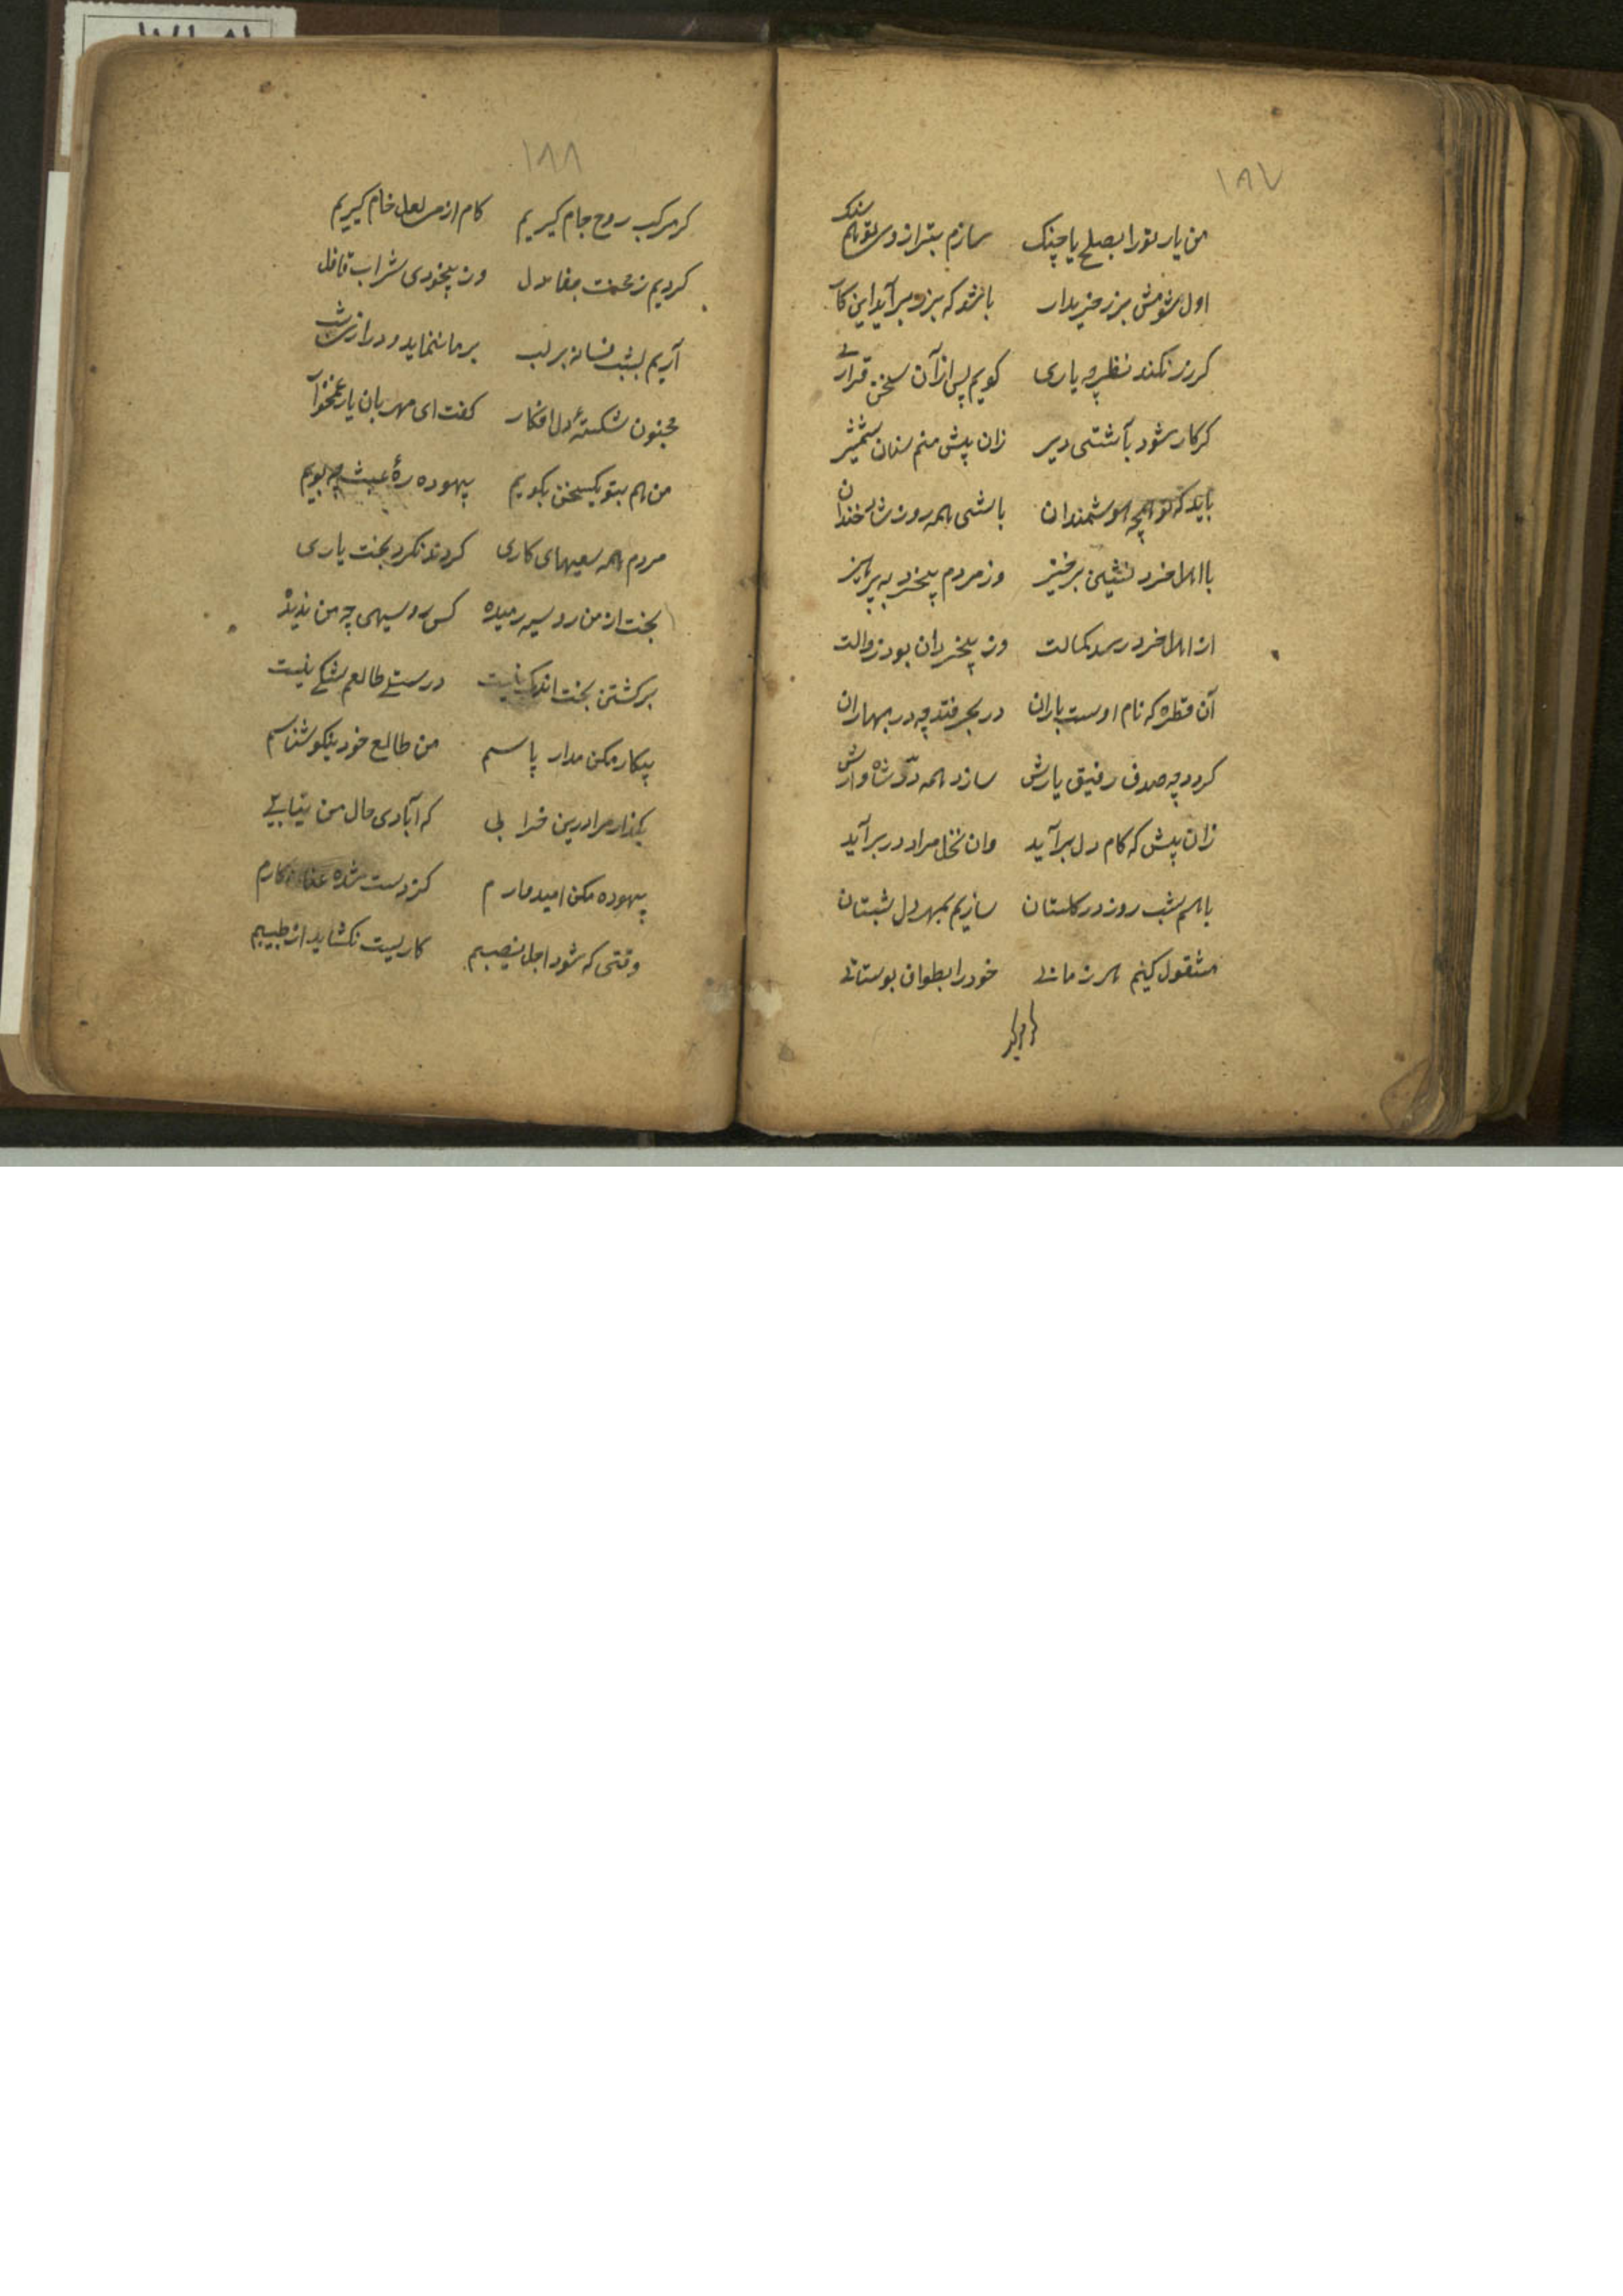 ۱۸۷
من یار تورا بصلح یا چنک سازم بترازوی تو هم سنک
اول شومش بزر خریدار باشد که بزر برآید این کار
کرزر نکند نظر چه یاری کویم پس ازآن سخن قراری
کرکار شود بآشتی دیر زان پیش منم سنان شمشیر
باید که تو همچه هوشمندان باشی همه روز شاد خندان
با اهل خرد نشین برخیز وز مردم بیخرد به پرهیز
از اهل خرد رسد کمالت وز بیخردان بود زوالت
آن قطره که نام اوست باران در بحر فتد چه در بهاران
کردد چه صدف رفیق یارش سازد همه درّ شاه وارش
زان پیش که کام دل برآید وان نخل مراد در برآید
با هم شب روز در کلستان سازیم بمهر دل شبستان
مشقول کنیم هر زمانے خودرا بطواف بوستانے
۱۸۸
کرمرکب روح جام کیریم کام ازمی لعل خام کیریم
کردیم ز محنت جفا دل وز بیخودی شراب قافل
آریم بشب فسانه بر لب بر ما ننماید و دراز شب
مجنون شکستهٔ دل افکار کفت ای مهربان یار غمخوار
من هم بتو یکسخن بکویم بیهوده رهٔ عبث چه بویم
مردم همه سعیهای کاری کردند نکرد بخت یاری
بخت از من رو سیه رمیده کس رو سیهی چه من ندیده
برکشتن بخت اندکی نیست در سستے طالعم شکے نیست
پیکار مکن مدار پاسم من طالع خود نیکو شناسم
بکذار مرا درین خرابی که آبادی حال من نیابے
بیهوده مکن امیدوارم کز دست شده عنان کارم
وقتی که شود اجل نصیبم کاریست نکشاید از طبیبم